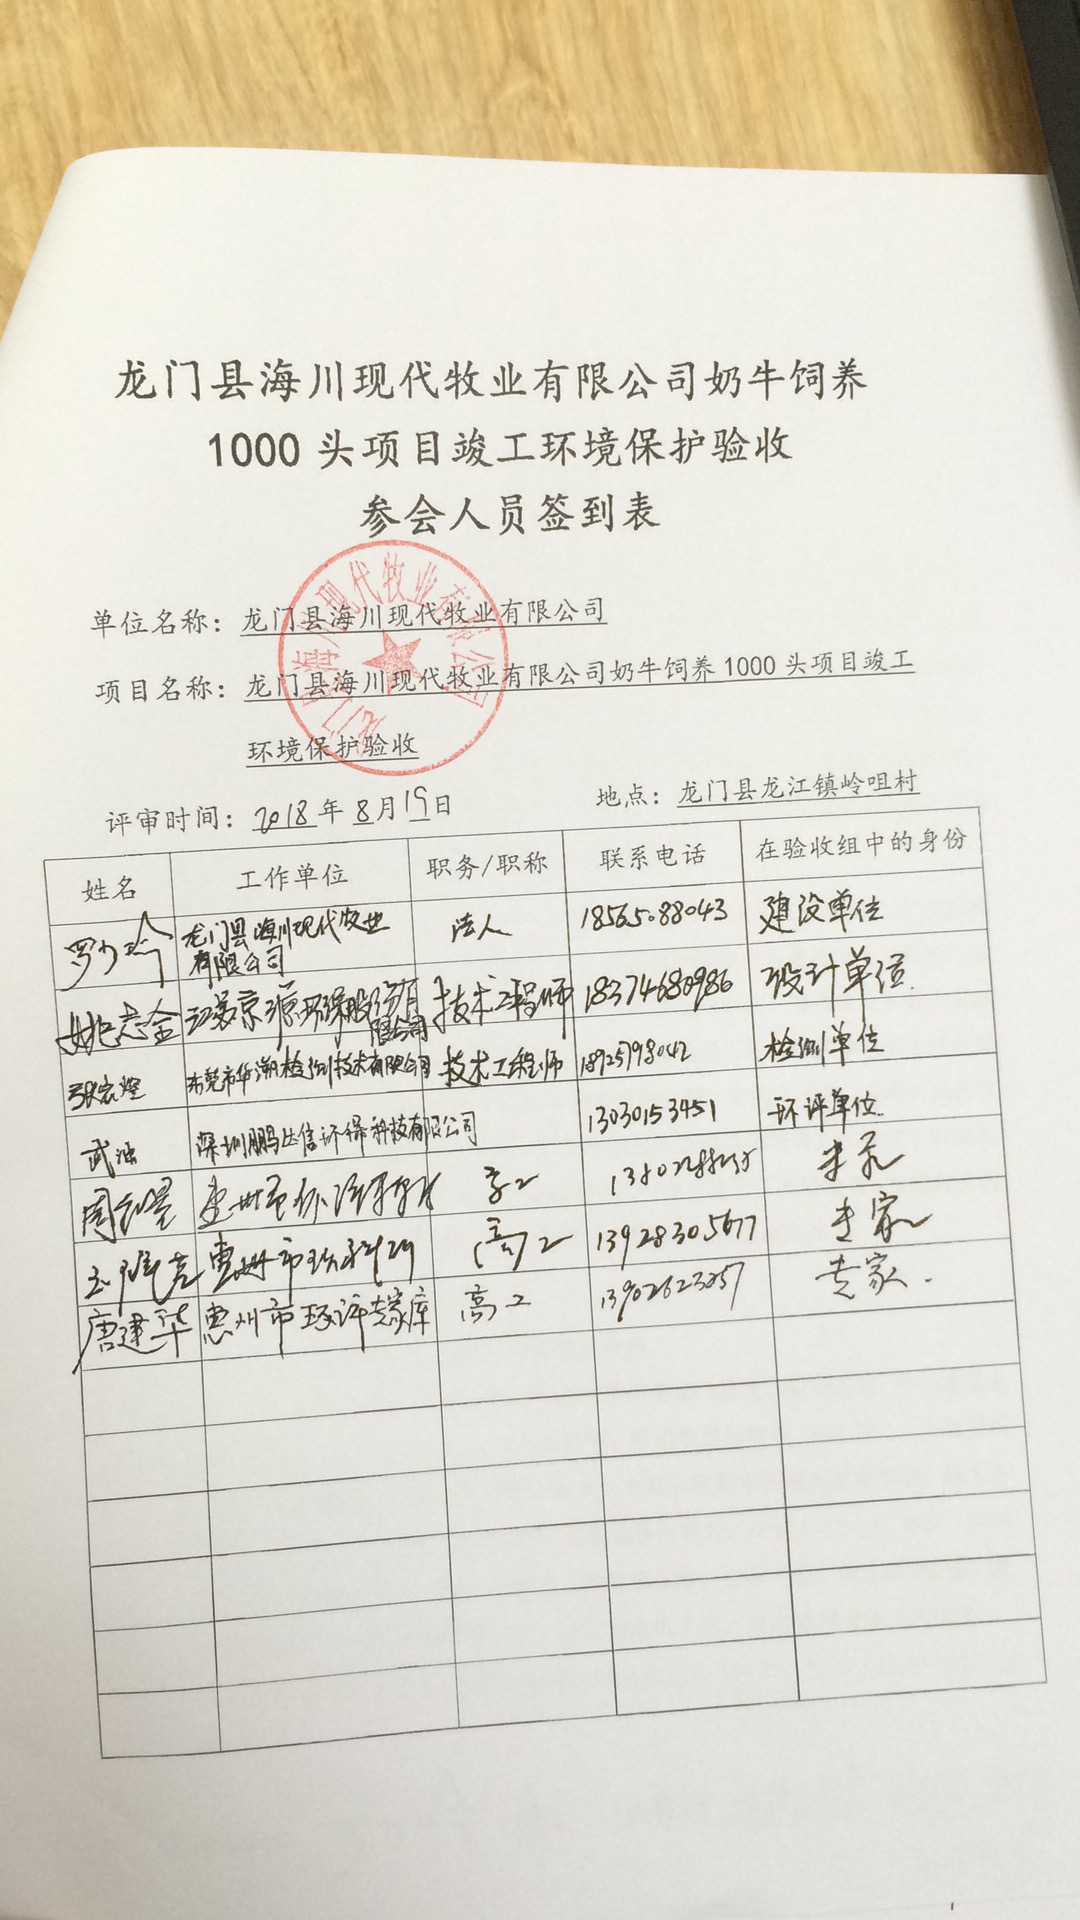 龙门县海川现代牧业有限公司奶牛饲养
1000 头项目竣工环境保护验收
参会人员签到表
单位名称：龙门县海川现代牧业有限公司
项目名称：龙门县海川现代牧业有限公司奶牛饲养 1000 头项目竣工
环境保护验收
龙门县海川现代牧业有限公司
评审时间：2018 年 8 月 19 日 地点：龙门县龙江镇岭咀村
姓名 工作单位 职务/职称 联系电话 在验收组中的身份
龙门县海川现代牧业 法人 18565088043 建设单位
有限公司
姚志金 江苏京源环保股份有 技术工程师 18374680986 设计单位
限公司
张宏煜 检测技术有限公司 技术工程师 18925798042 检测单位
武 深圳鹏达信环保科技有限公司 13030153451 环评单位
惠州市 高工
惠州市环科所 高工 13928305677 专家
唐建华 惠州市环评专家库 高工 13902623257 专家